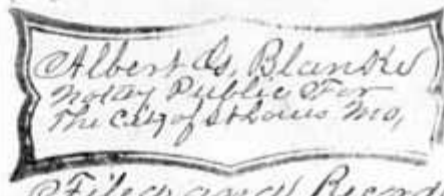 Albert G. Blanke
Notary Public For
The City of St Louis Mo,
Filed and Record